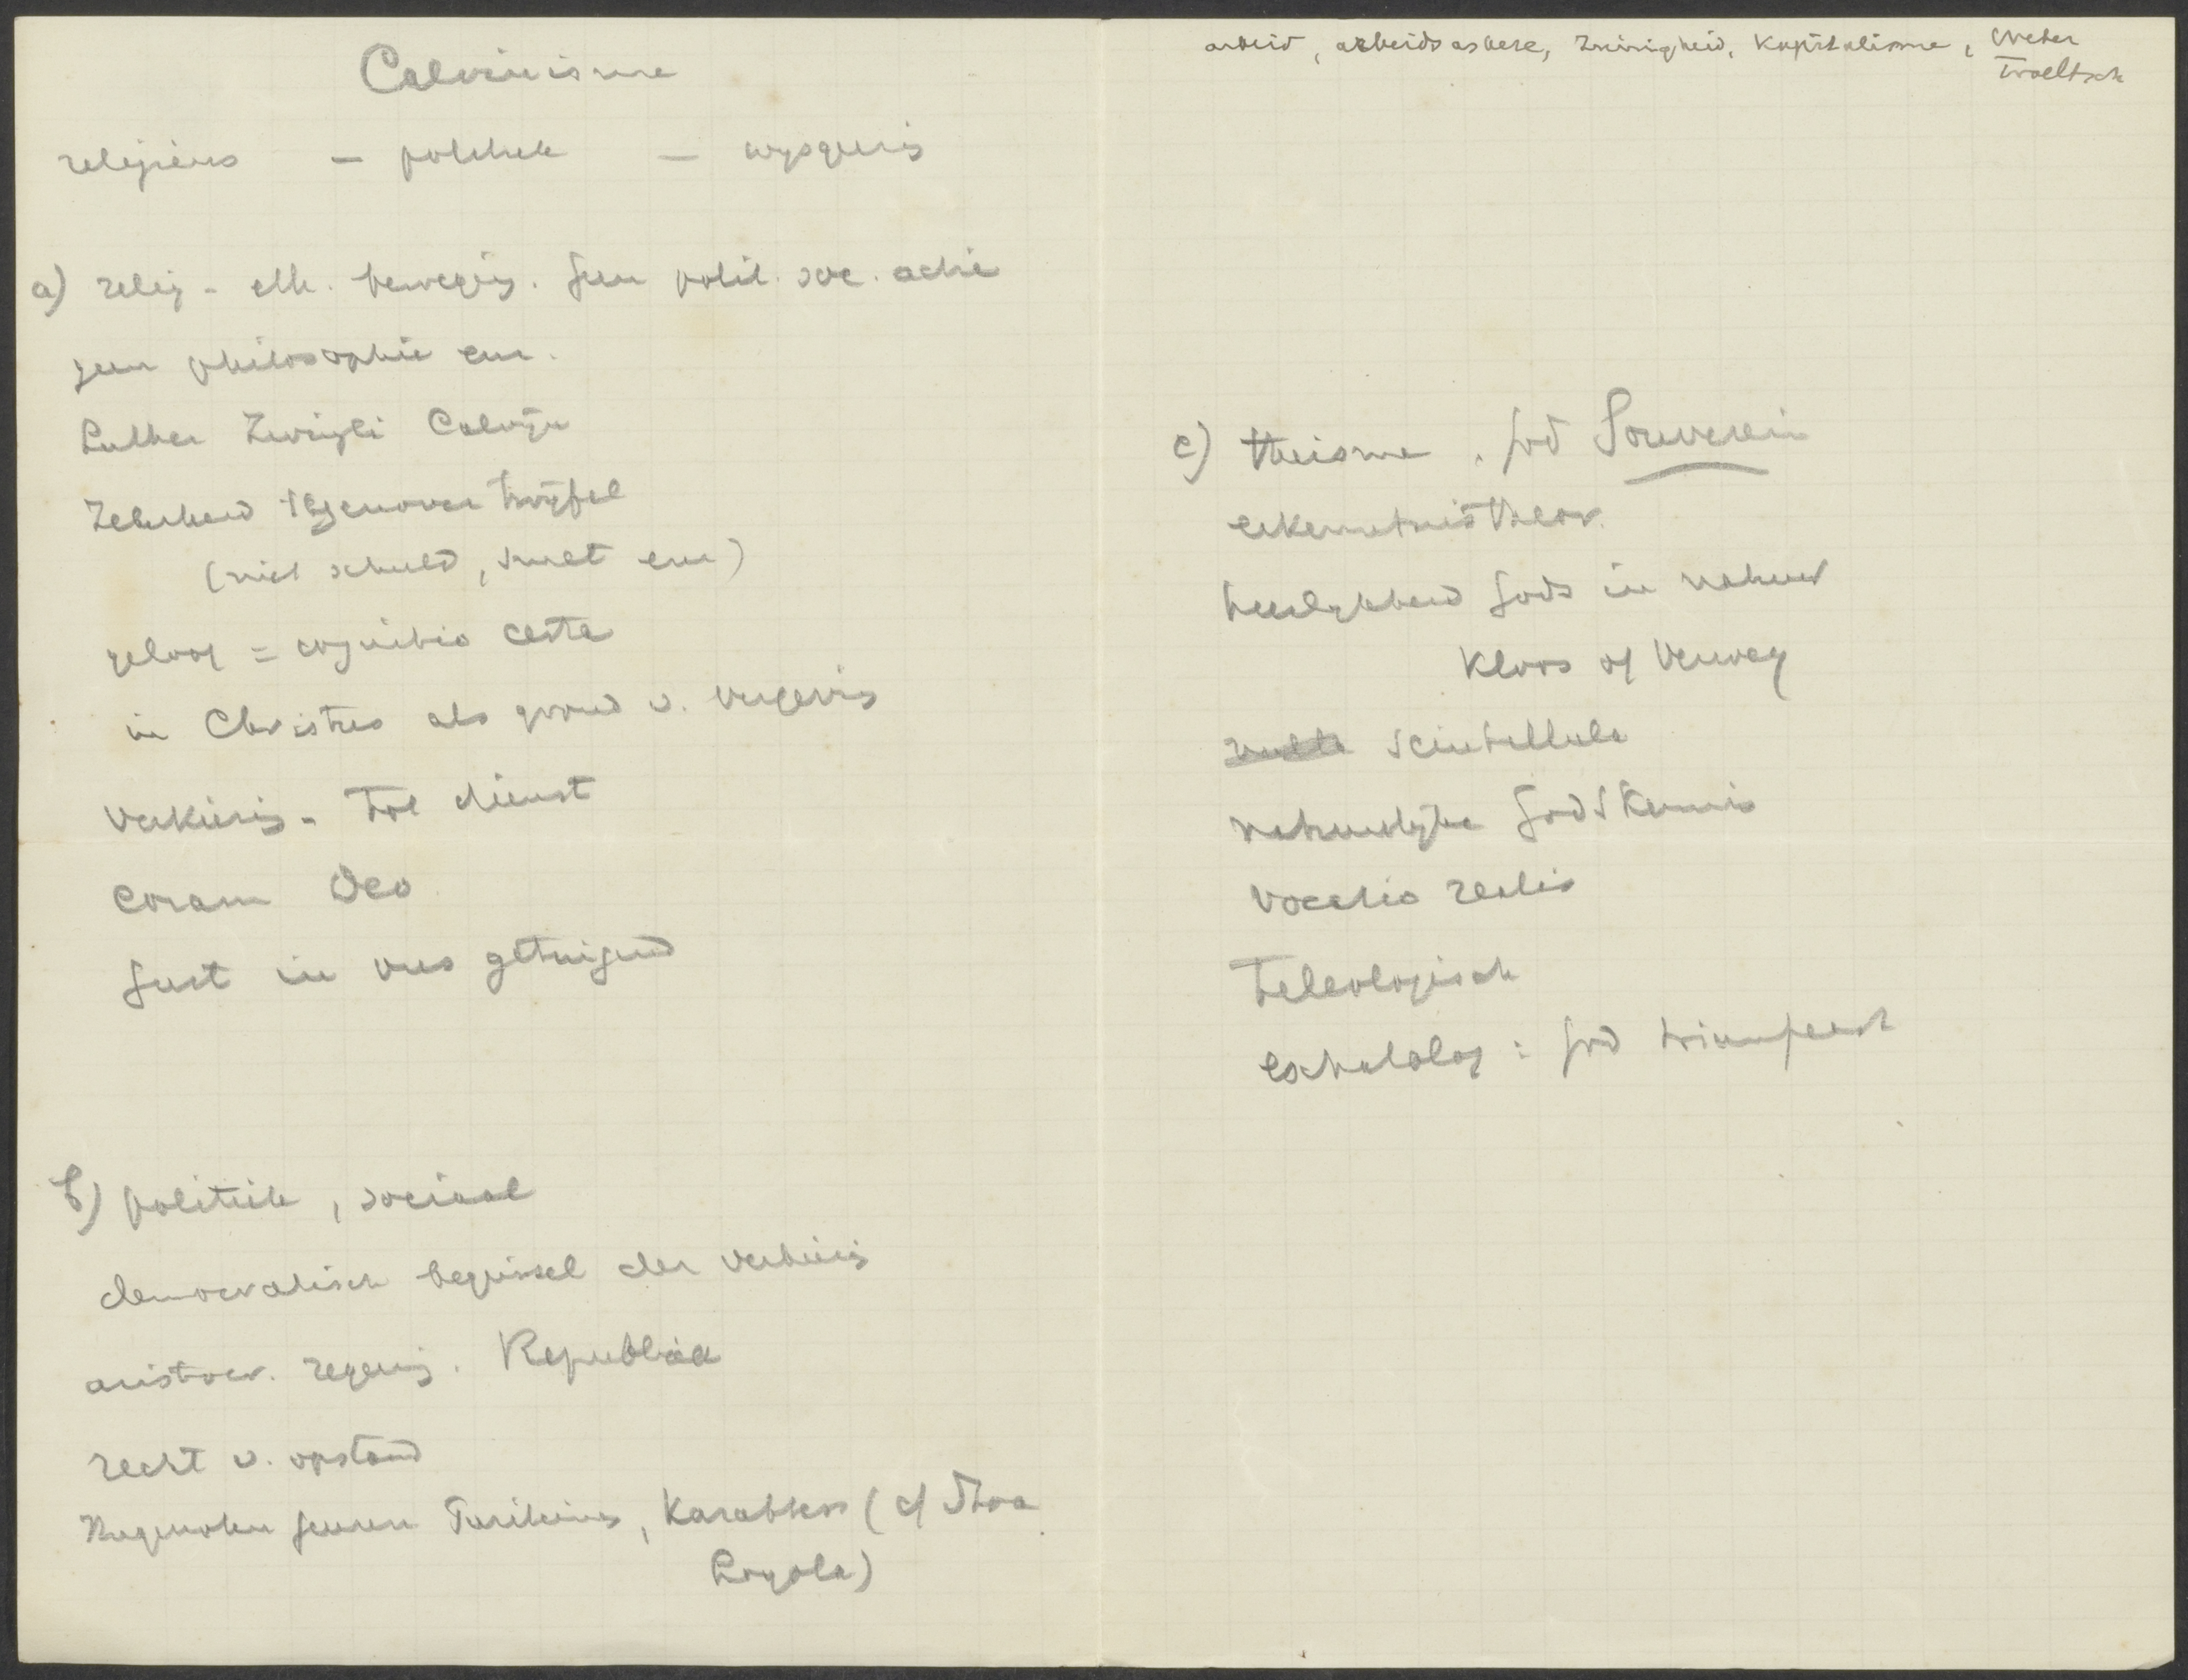 Calvinisme
religieus - politiek - wijsgerig
a) relig - eth. beweging. Geen polit. soc. actie
geen philosophie enz.
Luther Zwingli Calvijn
Zekerheid tegenover twijfel
(niet schuld, smet enz)
geloof = cognitio certa
in Christus als grond v. vergeving
verkiezing - tot dienst
coram Deo
Geest in ons getuigend
b) politiek, sociaal
democratisch beginsel der verkiezing
aristocr. regering. Republiek
recht v. opstand
Hugenoten Geuzen Puriteins, Karakters (cf Stoa
Loyola)
arbeid, arbeidsascese, zuinigheid, Kapitalisme, Weber
Troeltsch
c) theisme. God Souverein
erkenntnistheor.
heerlijkheid Gods in natuur
Kloos of Verwey
scintillula
natuurlijke Godskennis
vocatio realis
Teleologisch
eschatolog: God triumfeert